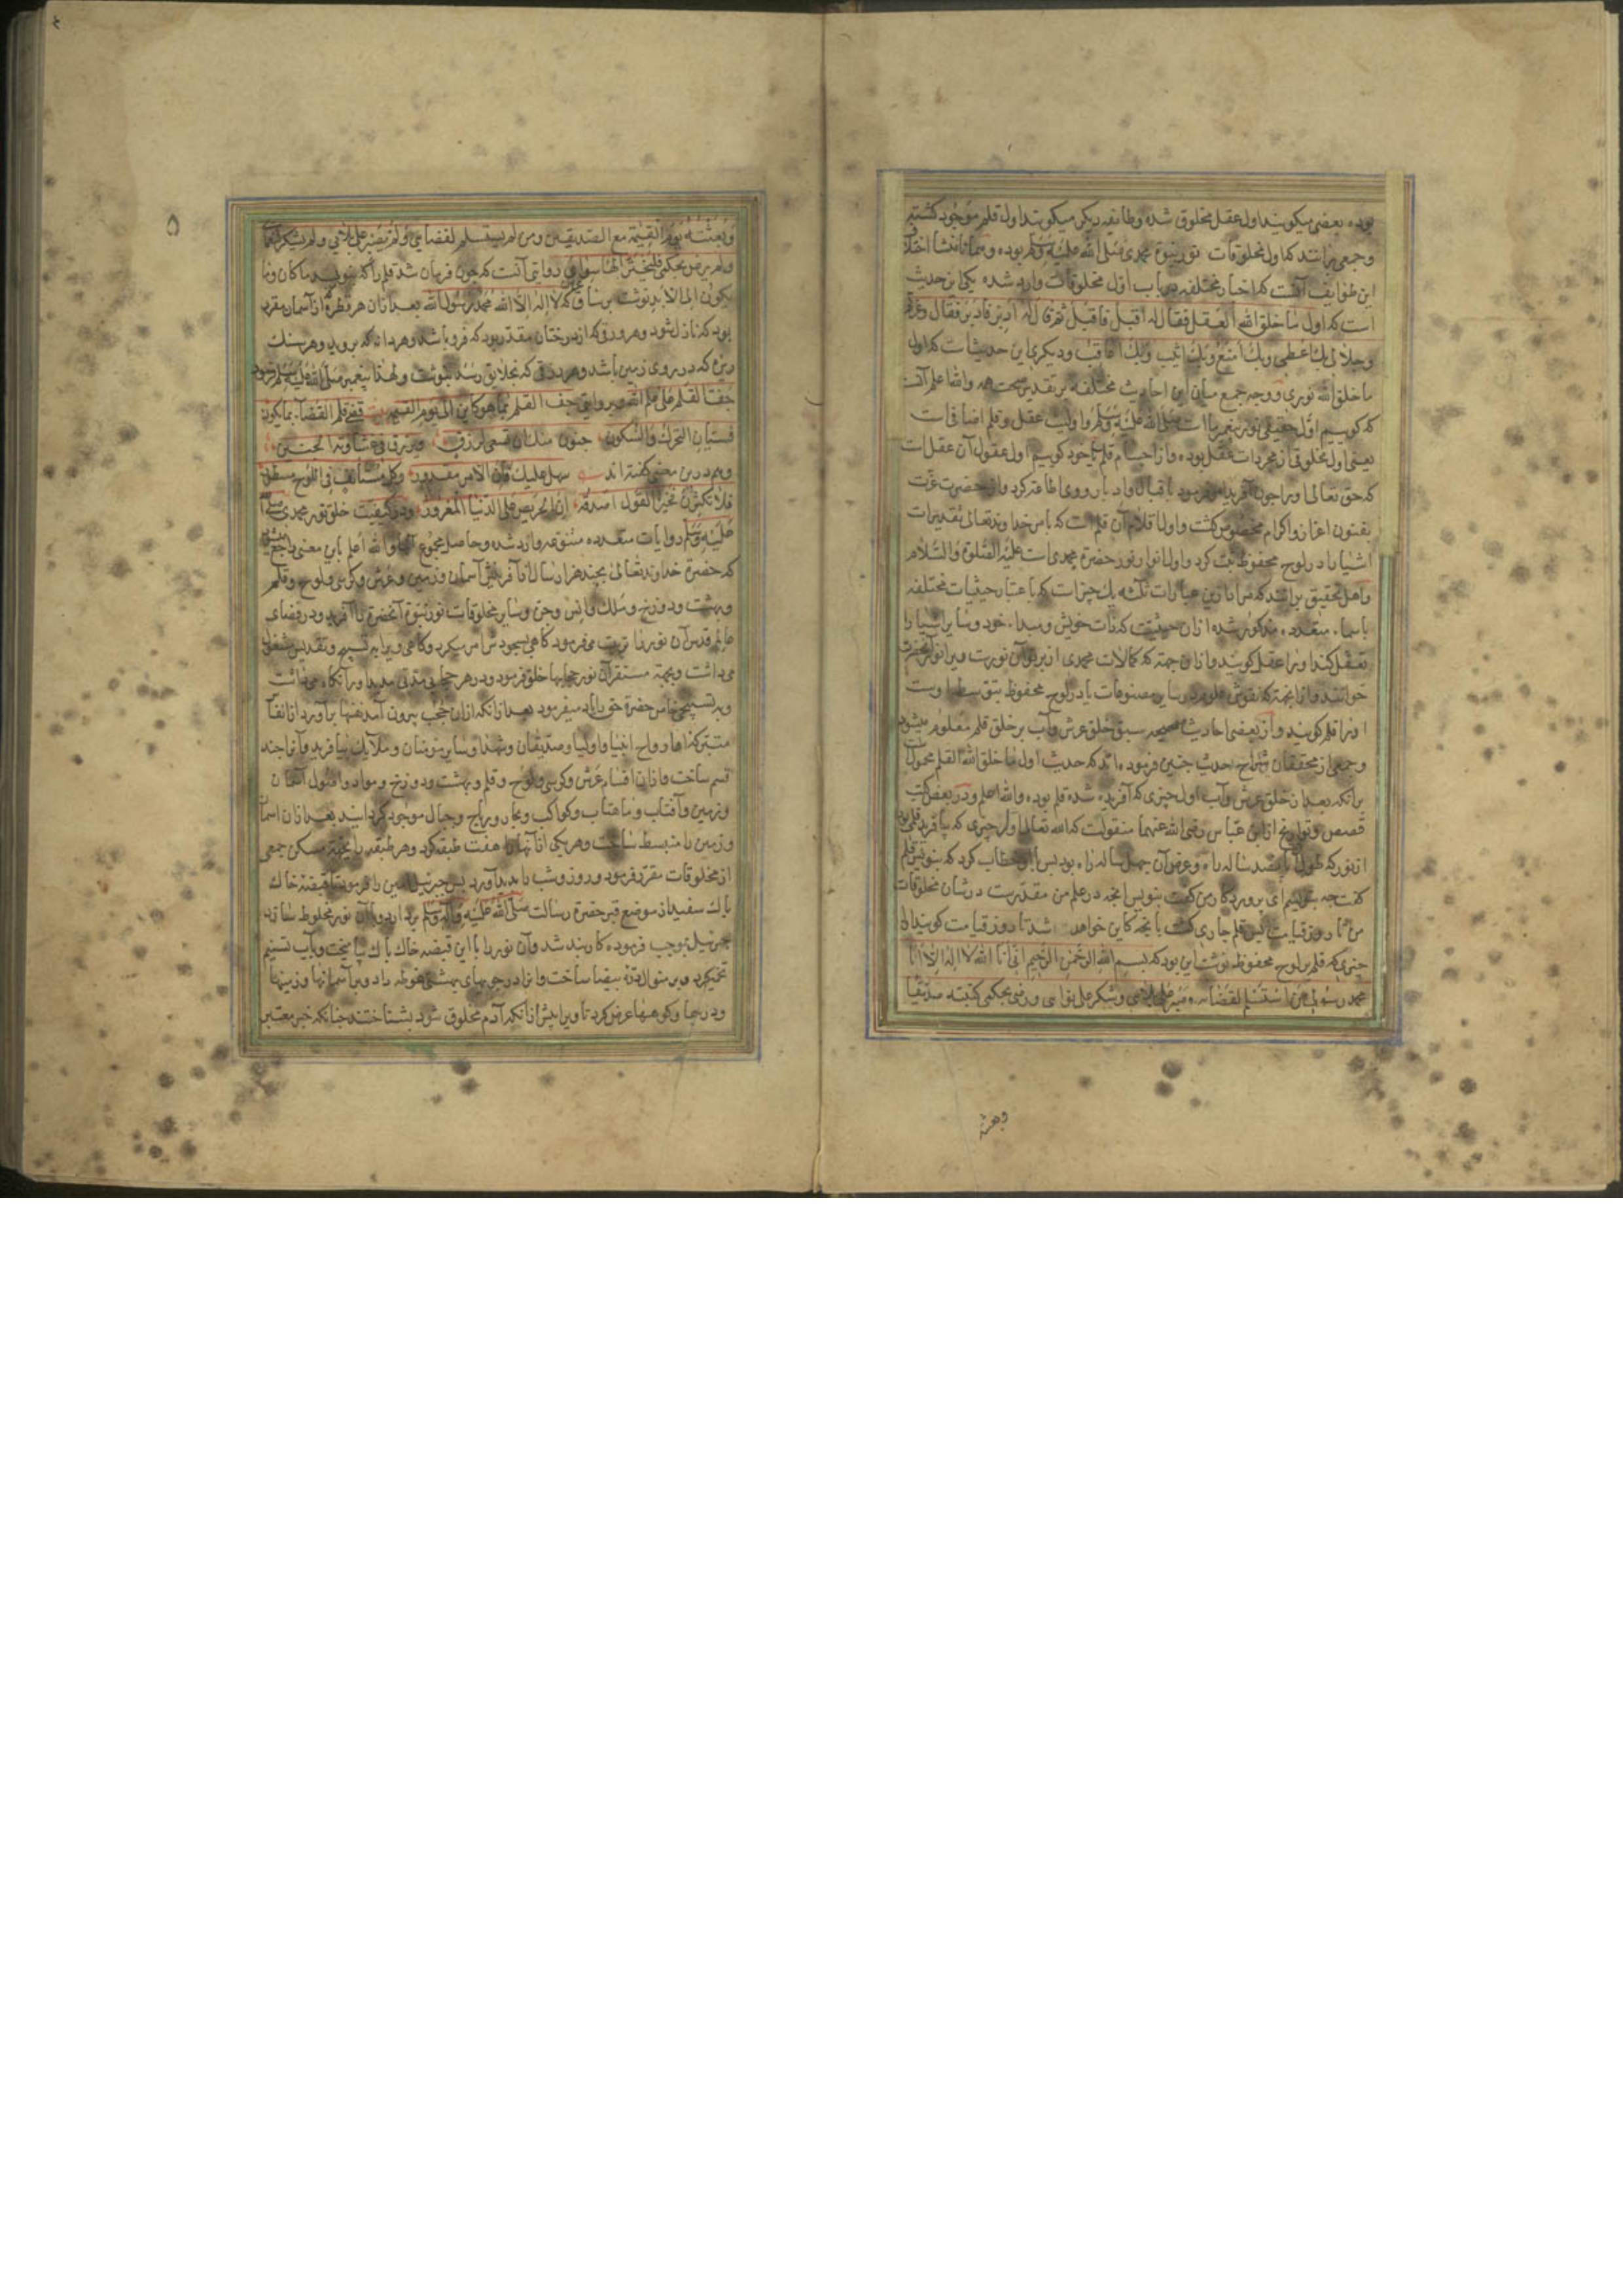 بوده بعضی میکویند اول عقل مخلوق شده وطایفه دیکر میکویند اول قلم موجود کشته
وجمعی برانند که اول مخلوقات نور نبوة محمدی صلی الله علیه وسلم بوده وهمانا منشأ اختلاف
این طوایف آنست که اخبار مختلفه در باب اول مخلوقات وارد شده یکی این حدیث
است که اول ما خلق الله العقل فقال له اقبل فاقبل ثم قال له ادبر فادبر فقال وعزتی
وجلالی بك اعطی وبك امنع وبك اثیب وبك اعاقب ودیکری این حدیث است که اول
ما خلق الله نوری ووجه جمع میان این احادیث مختلفه بر تقدیر صحت همه والله اعلم آنست
که کوییم اول حقیقی نور پیغمبر ما است صلی الله علیه وسلم واولیت عقل وقلم اضافی است
یعنی اول مخلوقی از مجردات عقل بوده واز اجسام قلم یا خود کوییم اول عقول آن عقل است
که حق تعالی او را چون آفرید امر فرمود باقبال وادبار ووی اطاعة کرد واز حضرت عزت
بفنون اعزاز واکرام مخصوص کشت واول اقلام آن قلم است که بامر خداوند تعالی تقدیرات
اشیا را در لوح محفوظ ثبت کرد واول انوار نور حضرة محمدی است علیه الصلوة والسلام
واهل تحقیق برانند که مراد ازین عبارات ثلثه یك چیز است که باعتبار حیثیات مختلفه
باسماء متعدده مذکور شده ازان حیثیت که ذات خویش ومبداء خود وسایر اشیا را
تعقل کند او را عقل کویند وازان جهة که کمالات محمدی از پرتو آن نورست ویرا نور آنحضرت
خوانند واز انجهة که نقوش علوم در سایر مصنوعات یا در لوح محفوظ بتوسط اوست
او را قلم کویند واز بعضی احادیث صحیحه سبق خلق عرش وآب بر خلق قلم معلوم میشود
وجمعی از محققان شراح حدیث چنین فرموده اند که حدیث اول ما خلق الله القلم محمول
برانکه بعد از خلق عرش وآب اول چیزی که آفریده شده قلم بوده والله اعلم ودر بعض کتب
قصص وتواریخ از ابن عباس رضی الله عنهما منقولست که الله تعالی اول چیزی که بیافرید قلمی بود
از نور که طول آن پانصد ساله راه وعرض آن چهل ساله راه بود پس باو خطاب کرد که بنویس قلم
کفت چه بنویسم ای پروردکار من کفت بنویس انچه در علم من مقدرست در شان مخلوقات
من تا روز قیامت پس قلم جاری کشت بانچه کاین خواهد شد تا روز قیامت کویند اول
چیزی که قلم بر لوح محفوظ نوشت این بود که بسم الله الرحمن الرحیم انی انا الله لا اله الا انا
محمد رسولی من استسلم لقضائی وصبر علی بلائی وشکر علی نعمائی ورضی بحکمی کتبته صدیقا
وبعثته
۵
وبعثته یوم القیمة مع الصدیقین ومن لم یستسلم لقضائی ولم یصبر علی بلائی ولم یشکر نعمائی
ولم یرض بحکمی فلیختر الها سوائی روایتی آنست که چون فرمان شد قلم را که بنویسد ما کان وما
یکون الی الابد نوشت بر ساق عرش که لا اله الا الله محمد رسول الله بعد ازان هر قطرهٔ از آسمان مقرر
بود که نازل شود وهر ورقی که از درختان مقدر بود که فرو باشد وهر دانه که بروید وهر سنك
ریزه که در روی زمین باشد وهر رزقی که بخلایق رسد بنوشت ولهذا پیغمبر صلی الله علیه وسلم فرمود
جف القلم علی علم الله وبروایتی جف القلم بما هو کاین الی یوم القیمة بیت قضی قلم القضاء بما یکون
فسیان التحرك والسکون جنون منك ان تسعی لرزق ویرزق فی غشاوته الجنین
وهم درین معنی کفته اند سهل علیك فان الامر مقدور وکل مستأنف فی اللوح مسطور
فلا تکثرن فخیر القول اصدقه ان الحریص علی الدنیا لمغرور ودر کیفیت خلق نور محمدی صلی الله
علیه وسلم روایات متعدده متنوعه وارد شده وحاصل مجموع آنها والله اعلم باین معنی راجع میشود
که حضرة خداوند تعالی بچند هزار سال از آفرینش آسمان وزمین وعرش وکرسی ولوح وقلم
وبهشت ودوزخ وملك وانس وجن وسایر مخلوقات نور نبوة آنحضرة را آفرید ودر فضای
عالم قدس آن نور را تربیت میفرمود کاهی بسجودش امر میکرد وکاهی ویرا به تسبیح وتقدیس مشغول
میداشت وبجهة مستقر آن نور حجابها خلق فرمود ودر هر حجابی مدتی مدید او را نکاه میداشت
وبه تسبیحی خاص حضرة حق را یاد میفرمود بعد ازانکه ازان حجب بیرون آمد نفسها برآورد از انفاس
متبرکه او ارواح انبیا واولیا وصدیقان وشهدا وسایر مؤمنان وملایك بیافرید وآنرا چند
قسم ساخت وازان اقسام عرش وکرسی ولوح وقلم وبهشت ودوزخ ومواد واصول آسمان
وزمین وآفتاب وماهتاب وکواکب وبحار وریاح وجبال موجود کردانید بعد ازان اسمان
وزمین را منبسط ساخت وهر یکی از آنها را هفت طبقه کرد وهر طبقه را بجهة مسکن جمعی
از مخلوقات مقرر فرمود وروز وشب را پدید آورد پس جبرئیل امین را فرمود تا قبضهٔ خاك
پاك سفید از موضع قبر حضرة رسالت صلی الله علیه وآله وسلم بردارد وبا آن نور مخلوط سازد
جبرئیل بموجب فرموده کاربند شد وآن نور را با این قبضه خاك پاك بیامیخت وبآب تسنیم
تخمیر کرد وبر منوال درهٔ بیضا ساخت وانرا در جویهای بهشت غوطه داد وبر آسمانها وزمینها
ودریاها وکوهها عرض کرد تا ویرا پیش ازانکه آدم مخلوق شود بشناختند چنانکه خبر معتبر